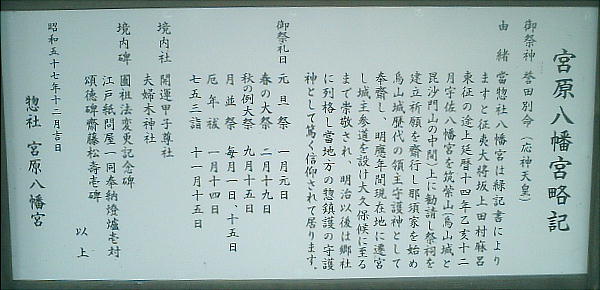 宮原八幡宮略記
御祭神 誉田別命(応神天皇)
由緒 當惣社八幡宮は縁記書により
ますと征夷大将坂上田村麻呂
東征の途上延暦十四年乙亥十二
月宇佐八幡宮を筑紫山(烏山城と
毘沙門山の中間)上に勧請し祭祠を
建立祈願を齋行し那須家を始め
烏山城歴代の領主守護神として
奉齋し、明應年間現在地に遷宮
し城主参道を設け大久保候に至る
まで崇敬され、明治以後は郷社
に列格し當地方の惣鎮護の守護
神として篤く信仰されて居ります。
御祭礼日 元旦祭 一月元日
春の大祭 二月十九日
秋の例大祭 九月十五日
月並祭 毎月一日、十五日
厄年祓 一月十四日
七五三詣 十一月十五日
境内社 開運甲子尊社
夫婦木神社
境内碑 圃祖法変更記念碑
江戸紙問屋一同奉納燈爐壱対
頌徳碑齋藤松壽壱碑
以上
昭和五十七年十二月吉日
惣社 宮原八幡宮